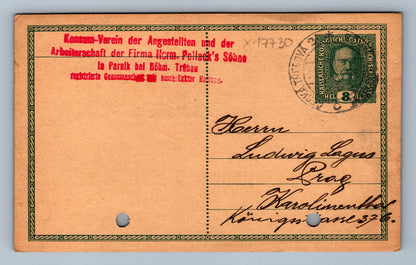 Konsum-Verein der Angestellten und der
Arbeiterschaft der Firma Herm. Pollack's Söhne
in Parnik bei Böhm. Trübau
registrierte Genossenschaft mit beschränkter Haftung.
x17730
8
Herrn
Ludwig Lagus
Prag
Karolinenthal
Königstrasse 376.